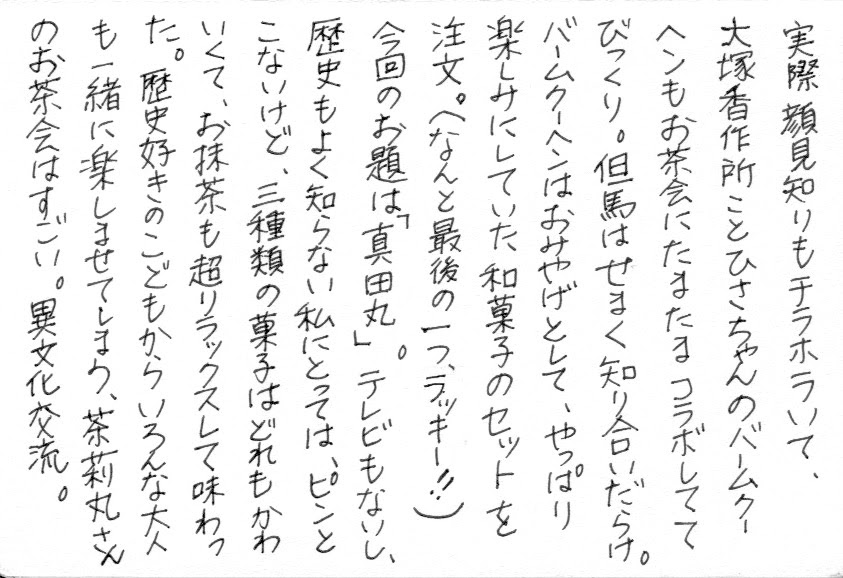 実際顔見知りもチラホラいて、
大塚香作所ことひさちゃんのバームクー
ヘンもお茶会にたまたまコラボしてて
びっくり。但馬はせまく知り合いだらけ。
バームクーヘンはおみやげとして、やっぱり
楽しみにしていた和菓子のセットを
注文。(なんと最後の一つ、ラッキー!!)
今回のお題は「真田丸」。テレビもないし、
歴史もよく知らない私にとっては、ピンと
こないけど、三種類の菓子はどれもかわ
いくて、お抹茶も超リラックスして味わっ
た。歴史好きのこどもからいろんな大人
も一緒に楽しませてしまう、茶莉丸さん
のお茶会はすごい。異文化交流。